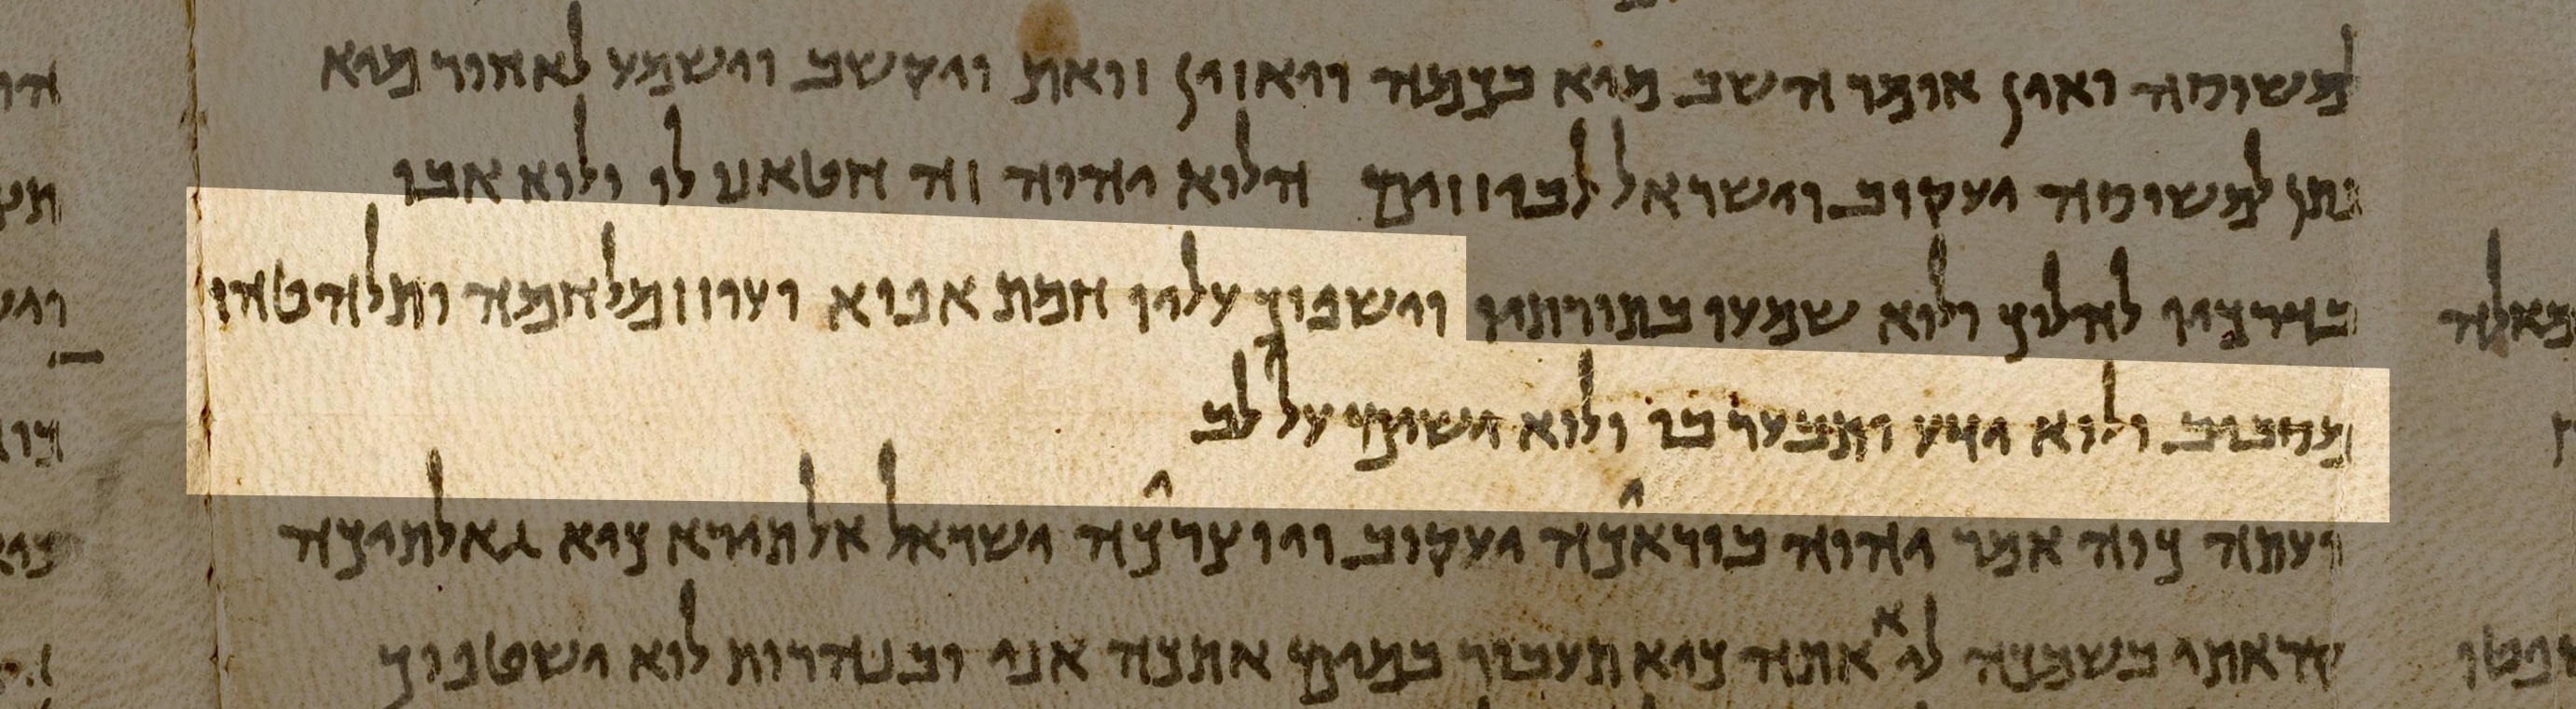 למשוסה ואין אומר השב מיא בכמה ויאזין זואת ויקשב וישמע לאחור מיא
נתן למשיסה יעקוב וישראל לבוזזים הלוא יהוה זה חטאנו לו ולוא אבו
בדרכיו להלוך ולוא שמעו בתורתיו וישפוך עליו חמת אפוא ועזוז מלחמה ותלהטהו
מסביב ולוא ידע ותבער בו ולוא ישים על לב
ועתה כוה אמר יהוה בוראכה יעקוב ויוצרכה ישראל אל תירא כיא גאלתיכה
קראתי בשמכה ליא אתה כיא תעבור במים אתכה אני ובנהרות לוא ישטפוך